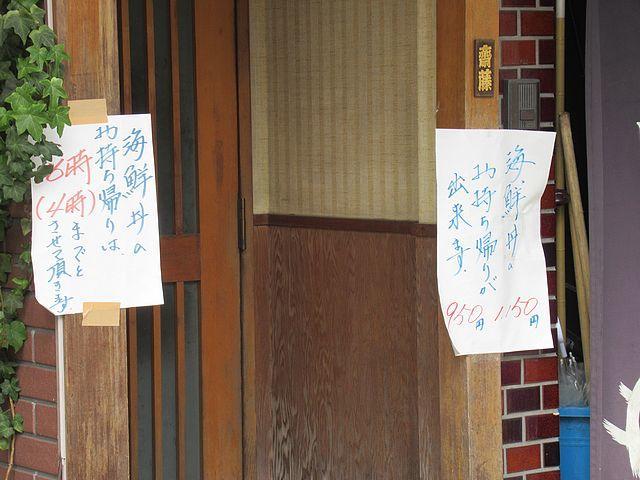 齋藤
海鮮丼の
お持ち帰りが
出来ます。
1150円
950円
海鮮丼の
お持ち帰りは、
16時
(4時)までと
させて頂きます。